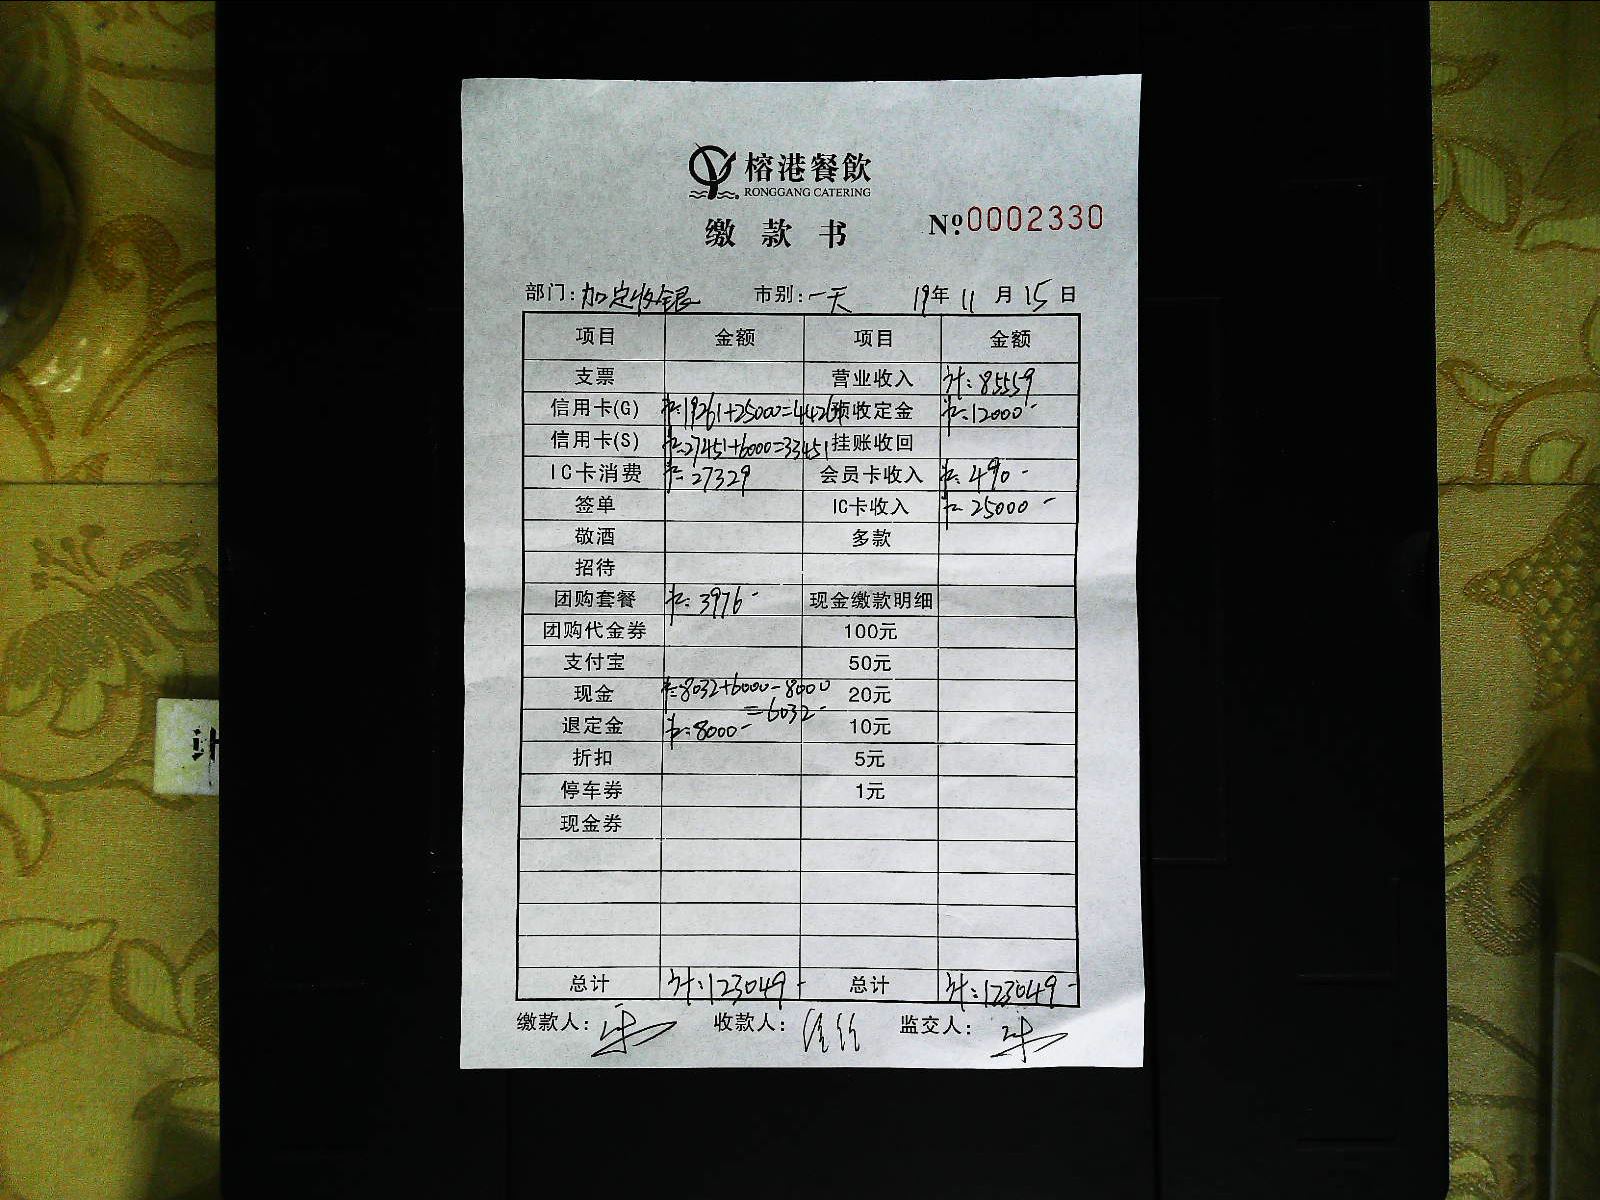 榕港餐飲
RONGGANG CATERING
缴款书 Nº0002330
部门:加定收银 市别:一天 19年11月15日
项目 金额 项目 金额
支票 营业收入 计:85559
信用卡(G) 19261+25000=44261 预收定金 12000-
信用卡(S) 27451+6000=33451 挂账收回
IC卡消费 27329 会员卡收入 490-
签单 IC卡收入 25000-
敬酒 多款
招待
团购套餐 3976- 现金缴款明细
团购代金券 100元
支付宝 50元
现金 8032+6000-8000 20元
=6032-
退定金 8000- 10元
折扣 5元
停车券 1元
现金券
总计 计:123049- 总计 计:123049-
缴款人: 收款人: 监交人: